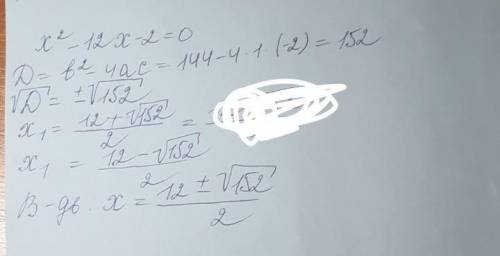 x² - 12x - 2 = 0
D = b² - 4ac = 144 - 4 · 1 · (-2) = 152
√D = ±√152
x₁ = (12 + √152)/2 =
x₁ = (12 - √152)/2
В-дь. x = (12 ± √152)/2